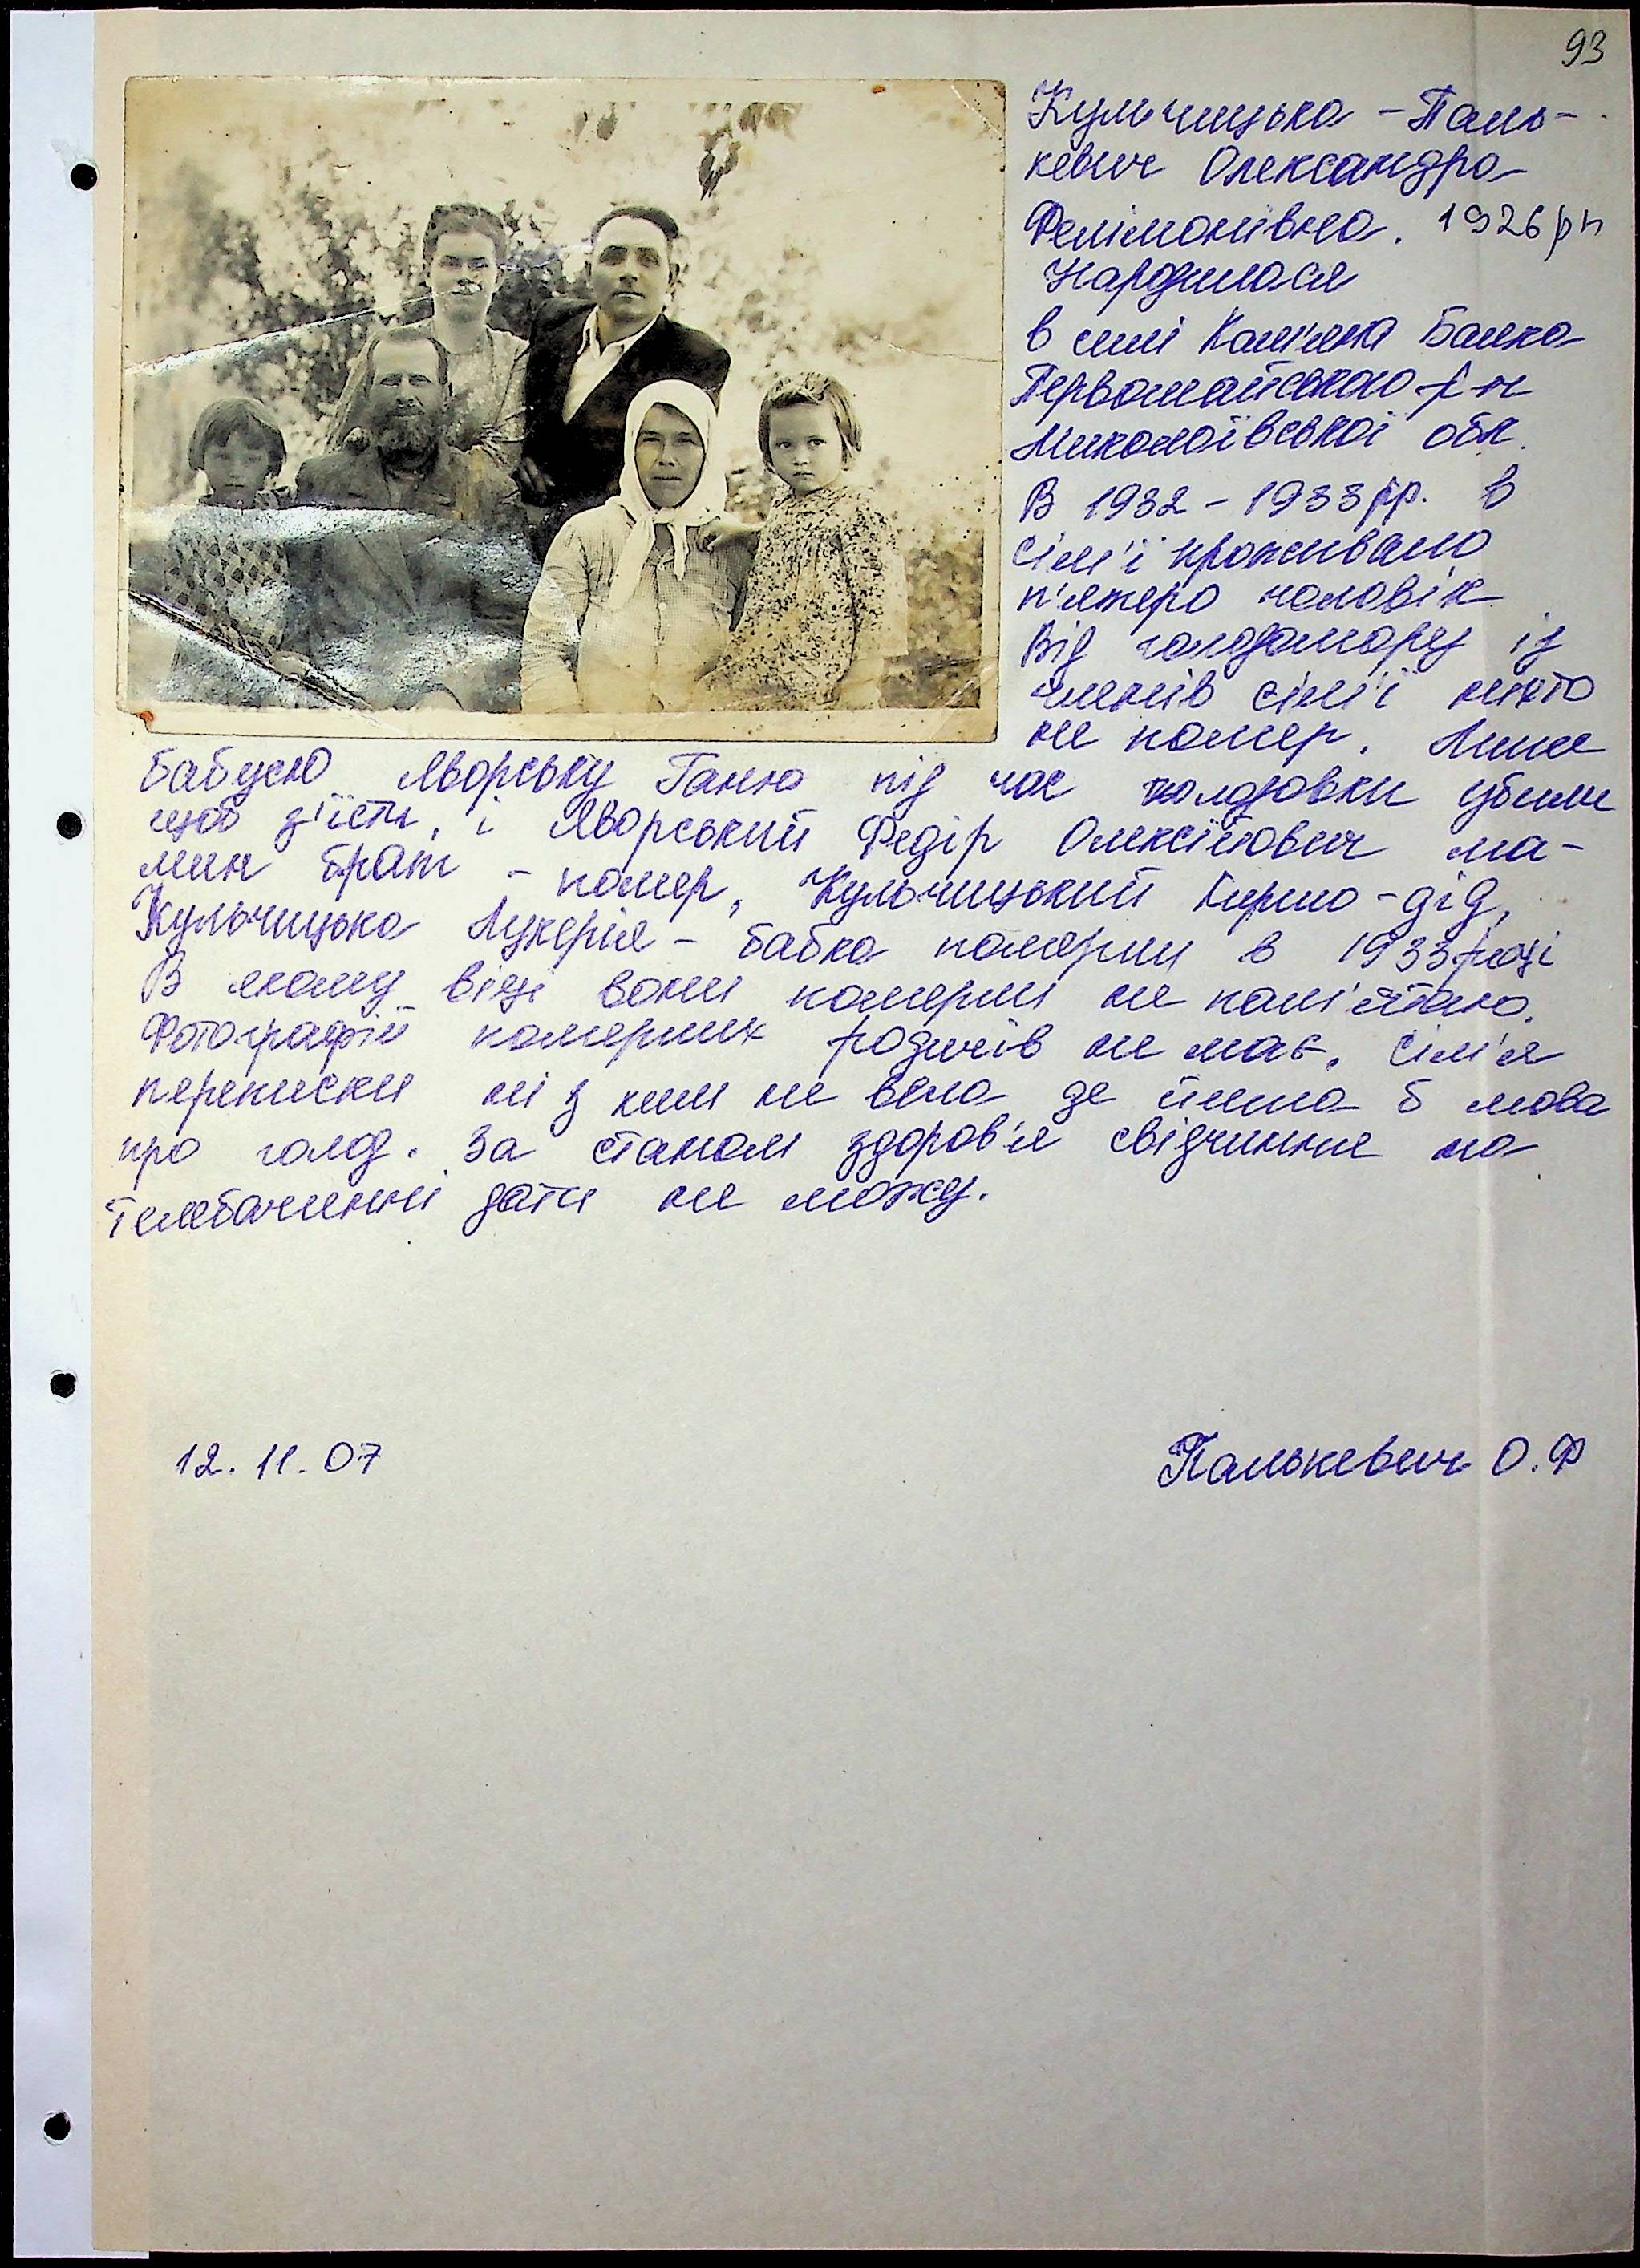 93
Кульчицька - Паль-
кевич Олександра
Фелімонівна. 1926 рн
Народилася
в селі Кам'яна Балка
Первомайського р-н
Миколаївської обл.
В 1932 - 1933 рр. в
сім'ї проживало
п'ятеро чоловік
Від голодомору із
членів сім'ї ніхто
не помер. Лише
бабусю Яворську Ганю під час голодовки убили
щоб з'їсти, і Яворський Федір Олексійович ма-
мин брат - помер, Кульчицький Кирило - дід,
Кульчицька Лукерія - бабка померли в 1933 році
В якому віці вони померли не пам'ятаю.
Фотографій померших родичів не має. Сім'я
переписки ні з ким не вела де йшла б мова
про голод. За станом здоров'я свідчиння на
телебаченні дати не можу.
12.11.07
Палькевич О.Ф